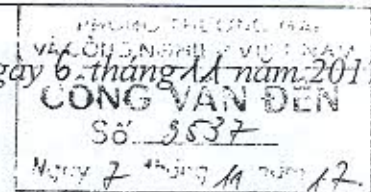 PHÒNG THƯƠNG MẠI
VÀ CÔNG NGHIỆP VIỆT NAM
gày 6 tháng 11 năm 201
CÔNG VĂN ĐẾN
Số 9537
Ngày 7 tháng 11 năm 17.